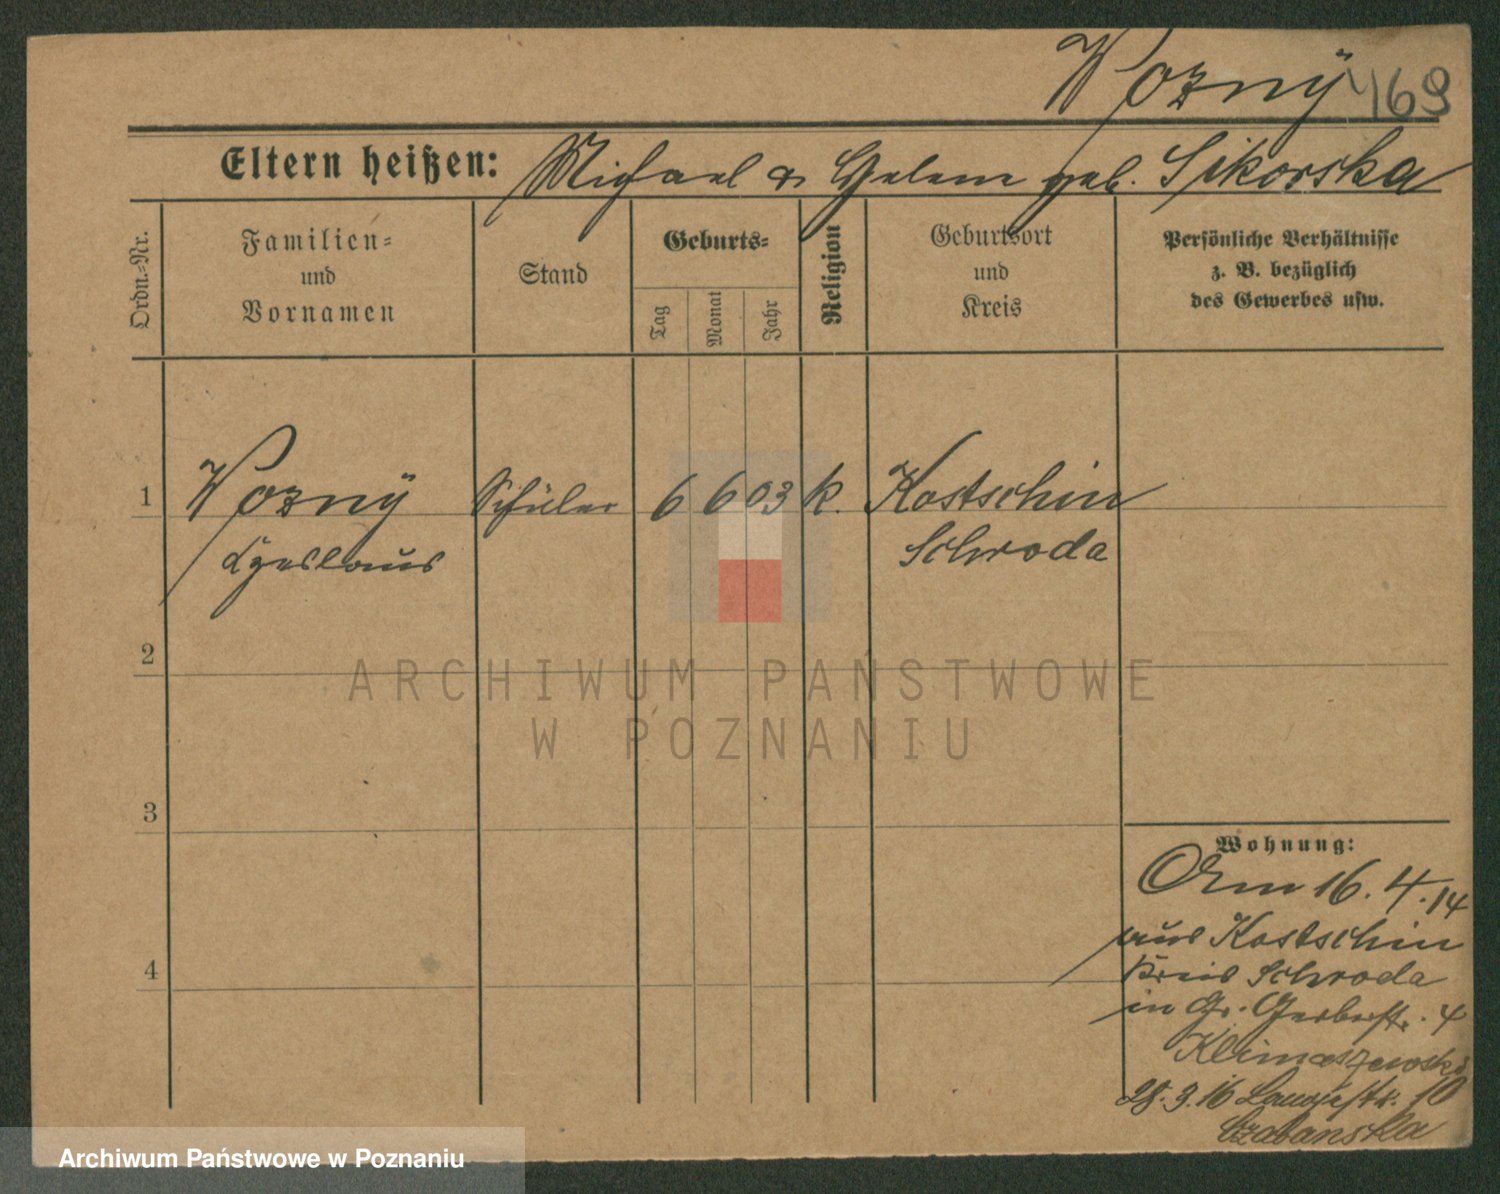 Wozny 469
Eltern heißen: Michael & Helene geb. Sikorska
Ordn.-Nr.
Familien-
und
Vornamen
Stand
Geburts-
Tag
Monat
Jahr
Religion
Geburtsort
und
Kreis
Persönliche Verhältnisse
z. B. bezüglich
des Gewerbes usw.
1 Wozny Schüler 6 6 03 k. Kostschin
Czeslaus Schroda
2
ARCHIWUM PAŃSTWOWE
W POZNANIU
3
Wohnung:
Am 16.4.14
aus Kostschin
4 Kreis Schroda
in Gr. Gerberstr. 4
Klimaszewski
28.3.16 Langestr. 10
Czabanska
Archiwum Państwowe w Poznaniu